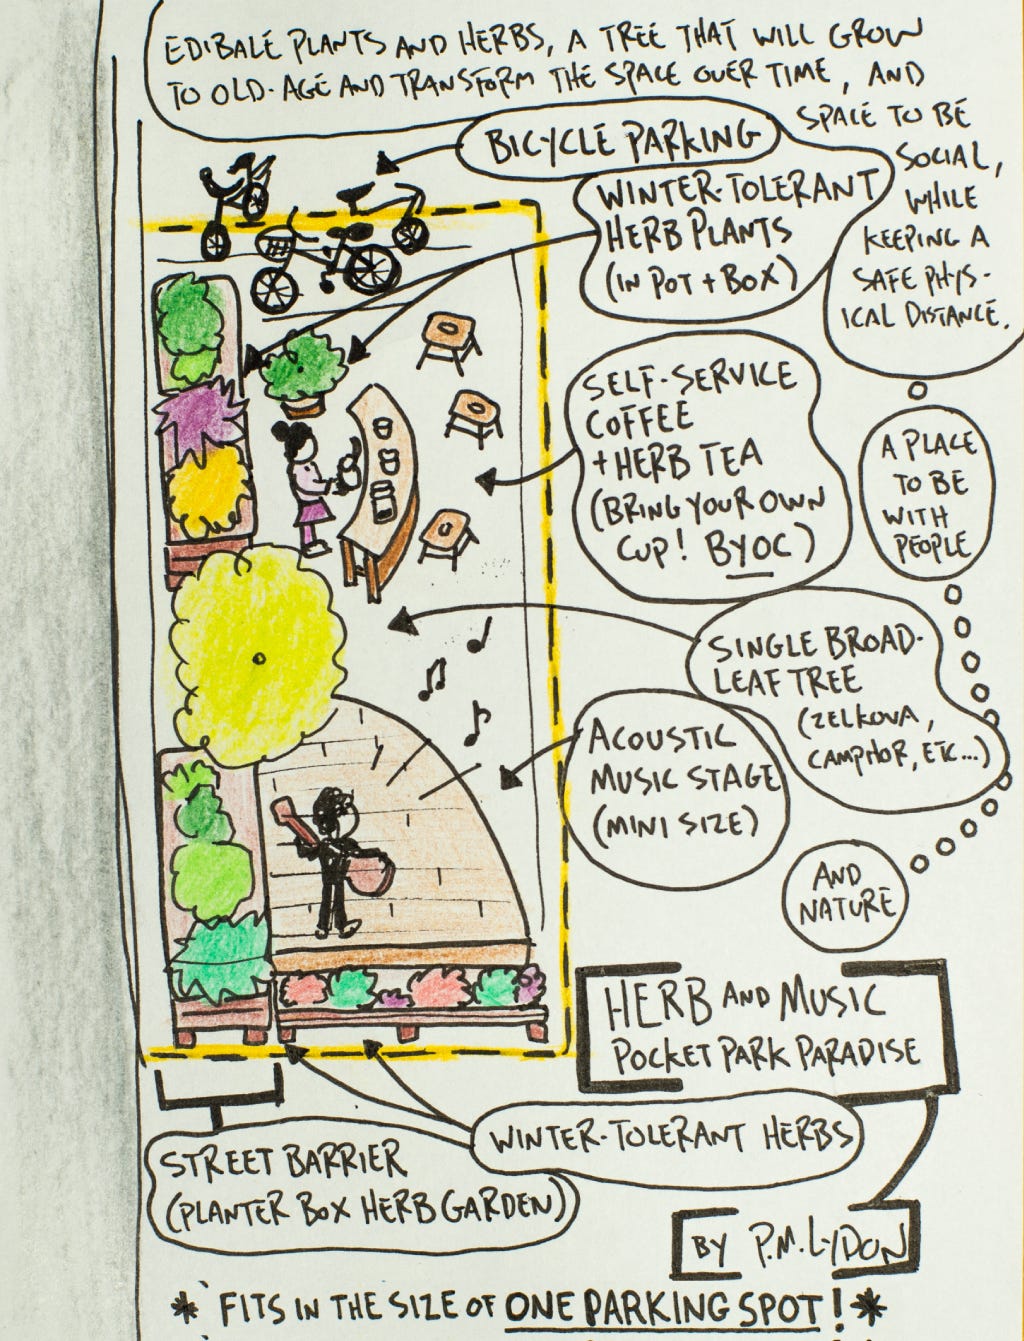 EDIBALE PLANTS AND HERBS, A TREE THAT WILL GROW
TO OLD-AGE AND TRANSFORM THE SPACE OVER TIME, AND
SPACE TO BE
SOCIAL,
WHILE
KEEPING A
SAFE PHYS-
ICAL DISTANCE.
BICYCLE PARKING
WINTER-TOLERANT
HERB PLANTS
(IN POT + BOX)
SELF-SERVICE
COFFEE
+ HERB TEA
(BRING YOUR OWN
CUP! BYOC)
A PLACE
TO BE
WITH
PEOPLE
SINGLE BROAD-
LEAF TREE
(ZELKOVA,
CAMPHOR, ETC...)
ACOUSTIC
MUSIC STAGE
(MINI SIZE)
AND
NATURE
HERB AND MUSIC
POCKET PARK PARADISE
WINTER-TOLERANT HERBS
STREET BARRIER
(PLANTER BOX HERB GARDEN)
BY P.M. LYDON
* FITS IN THE SIZE OF ONE PARKING SPOT! *